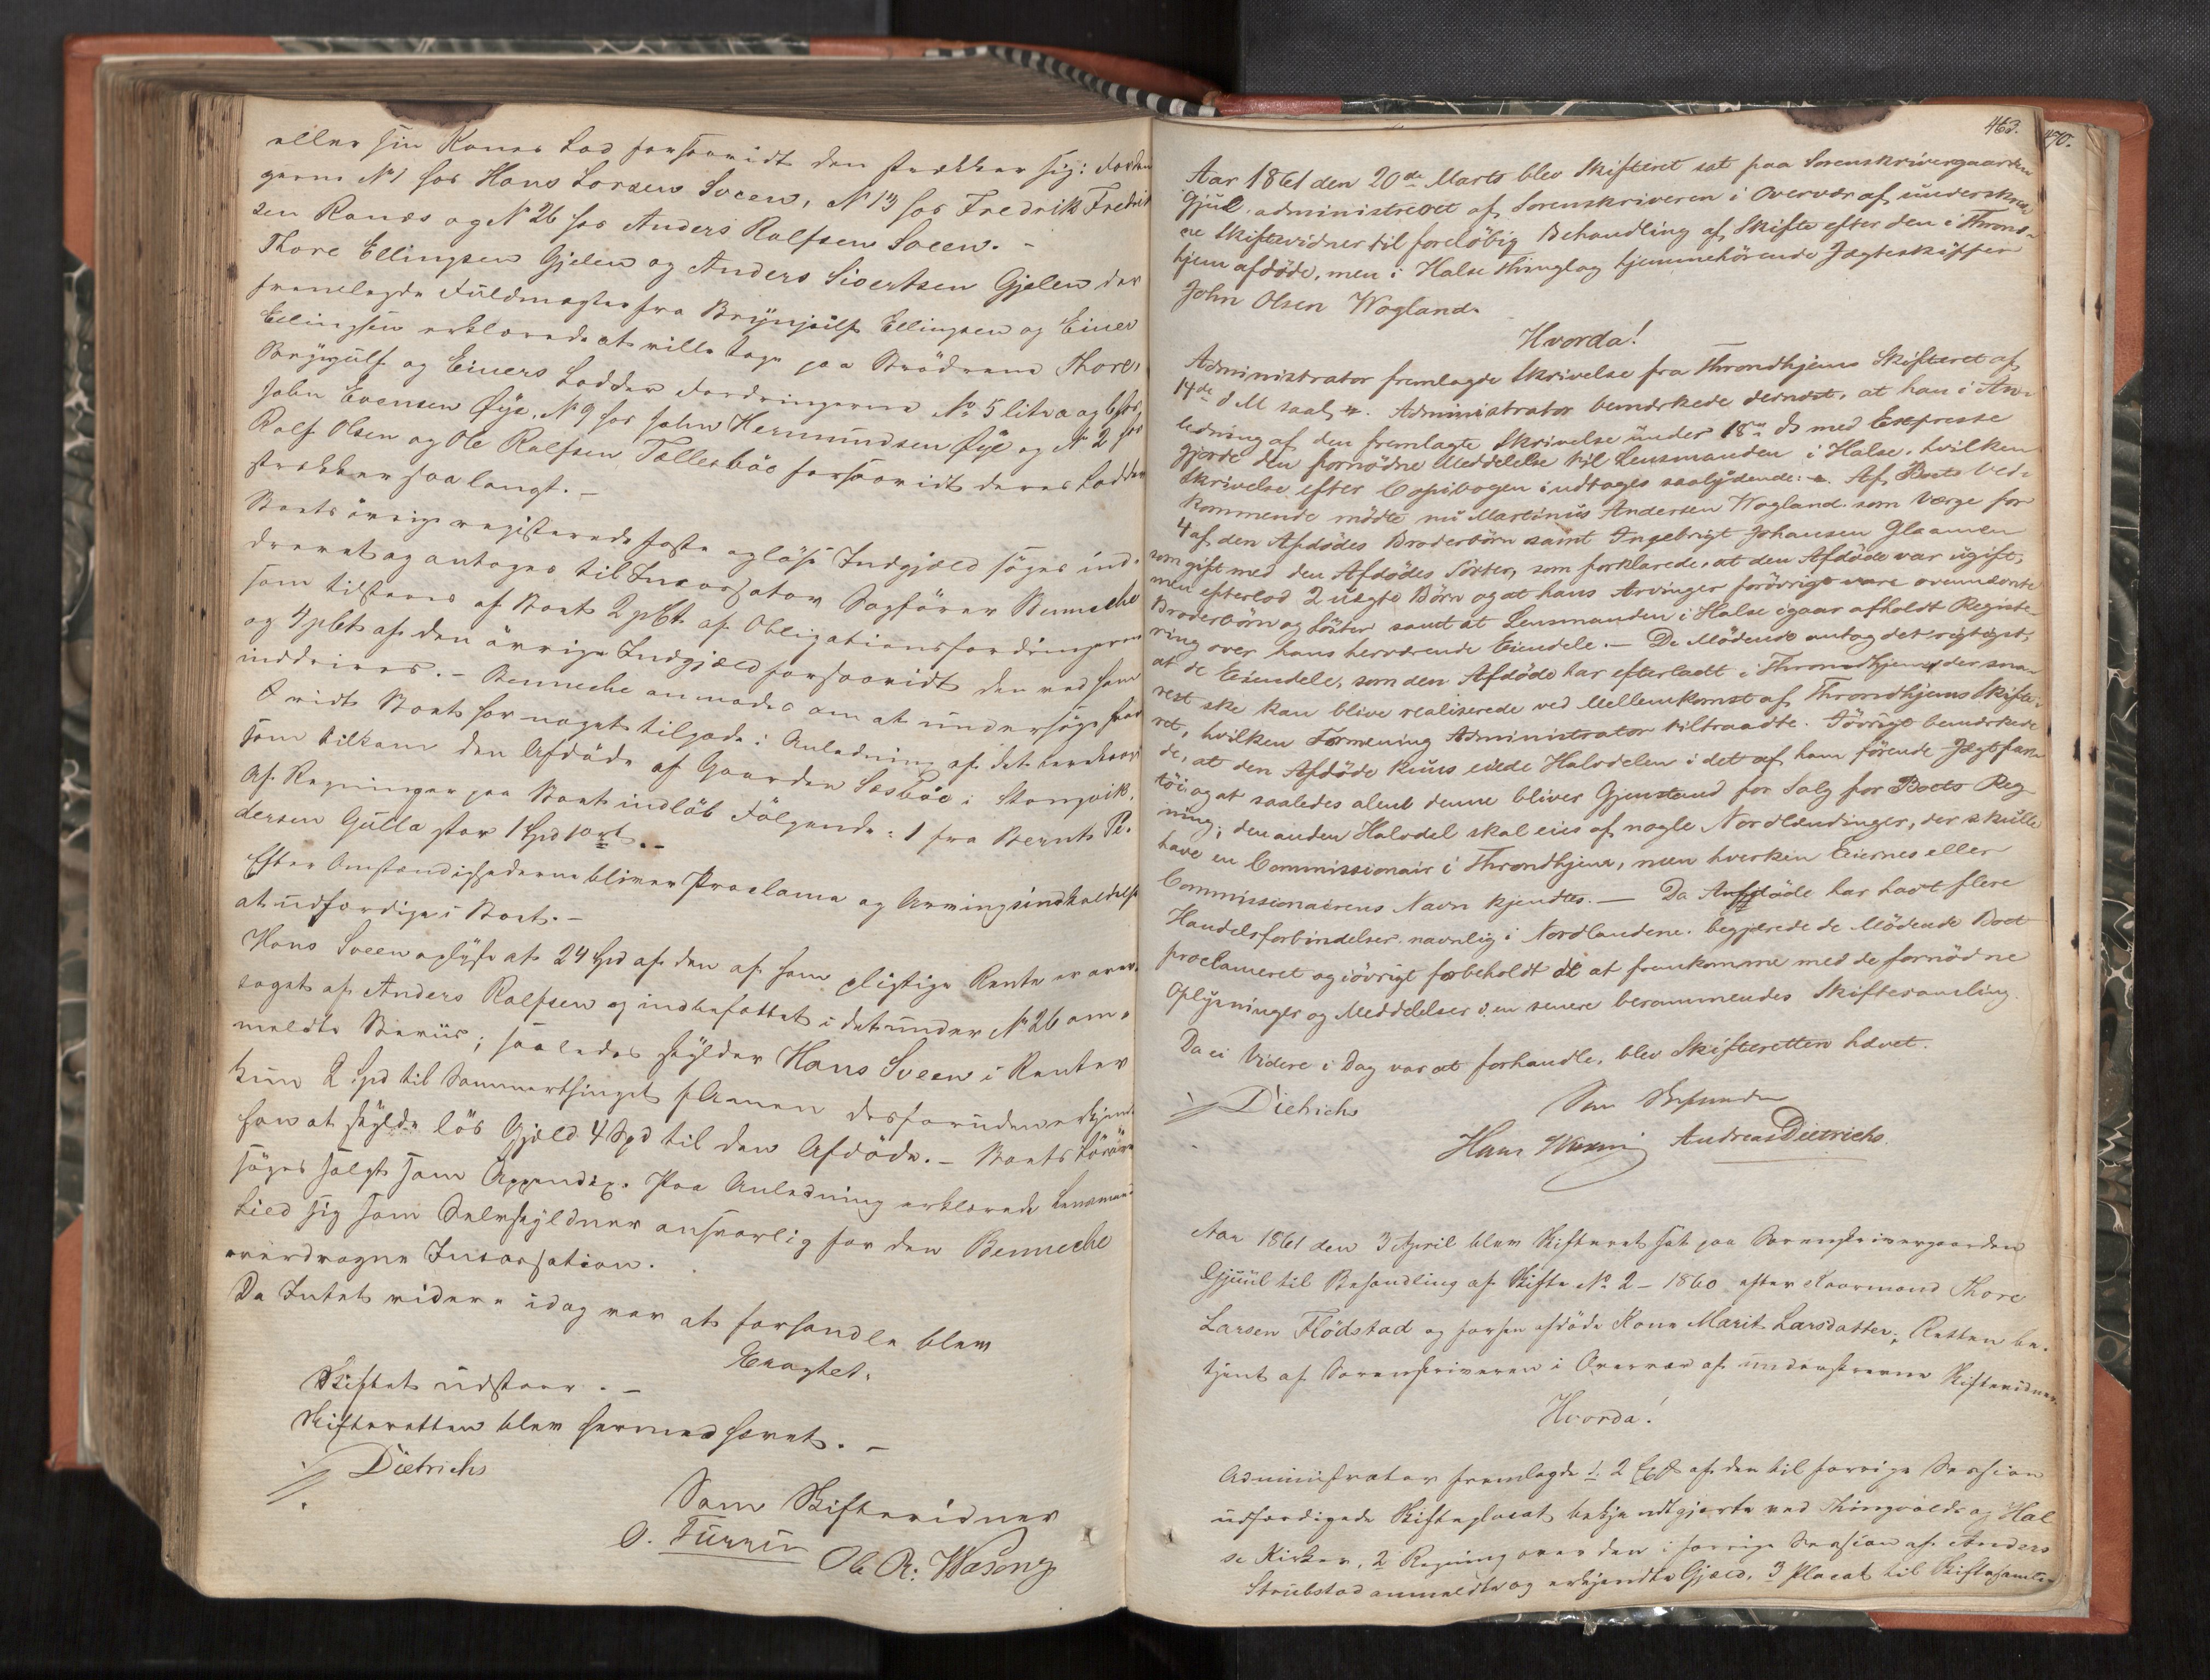 eller sin Kones Lod forsaavidt den strækker sig: Fordrin
gerne No 1 hos Hans Larsen Sveen, No 13 hos Fredrik Fredrik
sen Ranæs og No 26 hos Anders Rolfsen Sveen. -
Thore Ellingsen Gjelen og Anders Sivertsen Gjelen der
fremlagde Fuldmagter fra Brynjulf Ellingsen og Einer
Ellingsen erklærede at ville tage paa Brødrene Thores,
Brynjulfs og Einers Lodder Fordringerne No 5 litra a og b hos
John Evensen Øye, No 9 hos John Hermundsen Øye og No 2 hos
Rolf Olsen og Ole Rolfsen Tællesbøe forsaavidt deres Lodder
strækker saa langt. -
Boets øvrige registrerede faste og løse Indgjæld søges ind-
drevet og antoges til Incassator Sagfører Benneche
som tilstaaes af Boet 2 pCt af Obligationsfordringerne
og 4 pCt af den øvrige Indgjæld forsaavidt den ved ham
inddrives. - Benneche anmodes om at undersøge hvor
vidt Boet har noget tilgode i Anledning af det
som tilkom den Afdøde af Gaarden Sæsbøe i Stangvik.
Af Regninger paa Boet indløb Følgende: 1 fra Bernt Pe-
dersen Gulla stor 1 Spd 10 ort. -
Efter Omstændighederne bliver Proclama og Arvingsindkaldelse
at udfærdige i Boet. -
Hans Sveen oplyste at 24 Spd af den af ham pligtige Rente er over-
taget af Anders Rolfsen og indbefattet i det under No 26 om-
meldte Beviis; saaledes skylder Hans Sveen i Renter
kun 2 Spd til Sommerthinget sammen desforuden erkjendte
han at skylde løs Gjæld 4 Spd til den Afdøde. - Boets Løsøre
søges solgt som Appendix. Paa Anledning erklærede Lensmand
Lied sig som Selvskyldner ansvarlig for den Benneche
overdragne Incassation.
Da Intet videre idag var at forhandle blev
Eragtet.
Skiftet udstaaer. -
Skifteretten blev hermed hævet. -
Dietrichs
Som Skiftevidner
O. Furrun Ole R: Waseng
463.
470.
Aar 1861 den 20de Marts blev Skifteret sat paa Sorenskrivergaarden
Gjül, administreret af Sorenskriveren i Overvær af underskrev
ne Skiftevidner til foreløbig Behandling af Skifte efter den i Thrond-
hjem afdøde, men i Halse Thinglag hjemmehörende Jægteskipper
John Olsen Wagland.
Hvorda!
Administrator fremlagde Skrivelse fra Throndhjems Skifteret af
14de d M saal. Administrator bemærkede dernæst, at han i An-
ledning af den fremlagte Skrivelse under 18de ds med Expresse
gjorde den fornødne Meddelelse til Lensmanden i Halse, hvilken
Skrivelse efter Copibogen indtages saalydende: Af Boets Ved-
kommende mødte nu Martinus Andersen Wagland som Værge for
4 af den Afdødes Broderbörn samt Ingebrigt Johansen Glaamen
som gift med den Afdødes Söster, som forklarede, at den Afdøde var ugift,
men efterlod 2 uægte Börn og at hans Arvinger forövrigt vare ovennævnte
Broderbörn og Söster samt at Lensmanden i Halse igaar afholdt Registe-
ring over hans herværende Eiendele. - De Mödende antog det rigtigst,
at de Eiendele, som den Afdøde har efterladt i Throndhjem, der sna-
rest ske kan blive realiserede ved Mellemkomst af Throndhjems Skifte-
ret, hvilken Formening Administrator tiltraadte. Iövrigt bemærkede
de, at den Afdøde kuns eiede Halvdelen i det af ham förende Jægtfar-
töi og at saaledes alene denne bliver Gjenstand for Salg for Boets Reg-
ning; den anden Halvdel skal eies af nogle Nordlændinger, der skulle
have en Commissionair i Throndhjem, men hverken Eiernes eller
Commissionairens Navn kjendtes. - Da Afdøde har havt flere
Handelsforbindelser navnlig i Nordlandene, begjærede de Mödende Boet
proclameret og iövrigt forbeholdt at fremkomme med de fornødne
Oplysninger og Meddelelser i en senere berammendes Skiftesamling.
Da ei Videre i Dag var at forhandle, blev Skifteretten hævet.
Dietrichs
Som Skiftevidner
Hans Andreas Dietrichs
Aar 1861 den 3 April blev Skifteret sat paa Sorenskrivergaarden
Gjüül til Behandling af Skifte No 2 - 1860 efter Kaarmand Thore
Larsen Flödstad og forhen afdøde Kone Marit Larsdatter, Retten be-
tjent af Sorenskriveren i Overvær af underskrevne Skiftevidner.
Hvorda!
Administrator fremlagde 1. 2 Expl af den til forrige Session
udfærdigede Skifteplacat bekjendtgjorte ved Thingvolds og Hal
se Kirker, 2 Regning over den i forrige Session af Anders
Strübstad anmeldte og erkjendte Gjæld, 3 Placat til Skiftesamlin